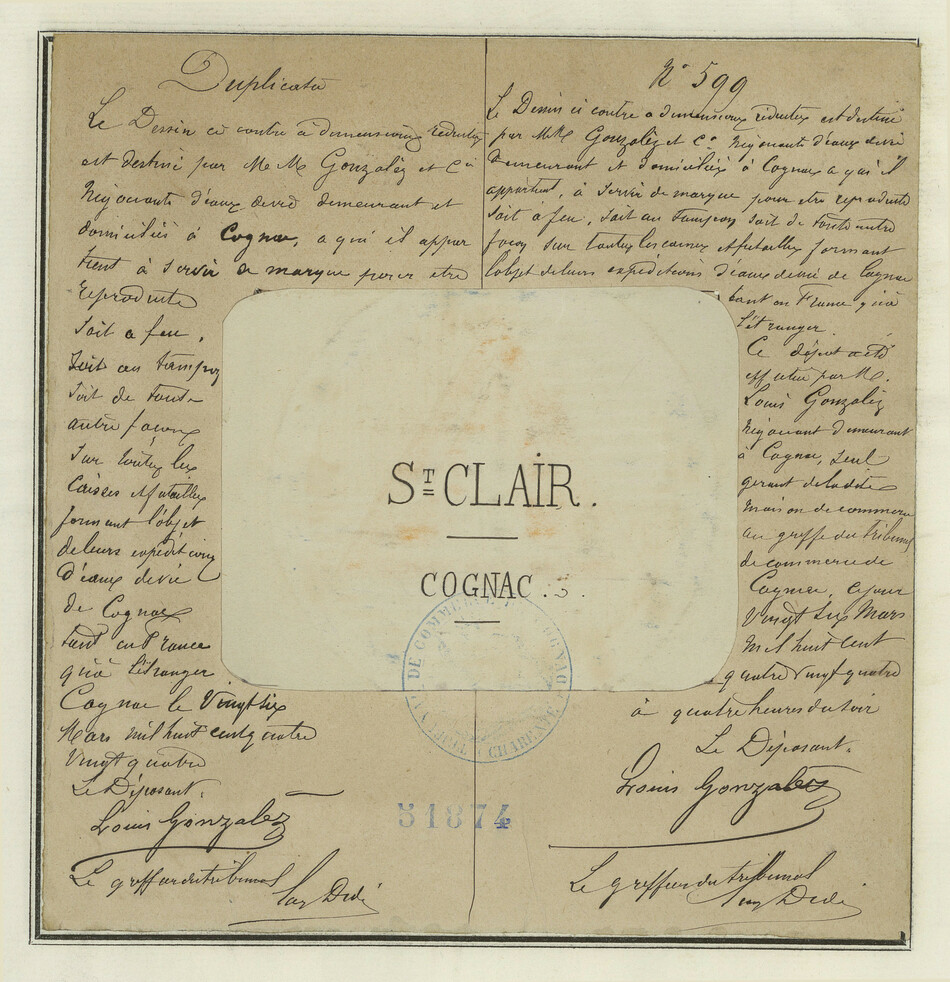 Duplicata
Le Dessin ci contre à dimensions réduites
est destiné par MM Gonzalèz et Cie
Négociants d'eaux de vie demeurant et
domiciliés à Cognac, a qui il appar
tient à servir de marque pour etre
reproduite
Soit a feu,
Soit au tampon
Soit de toute
autre façons
Sur toutes les
Caisses et futailles
formant l'objet
de leurs expéditions
d'eaux de vie
de Cognac
tant en France
qu'à l'étranger
Cognac le Vingt six
Mars mil huit cent quatre
Vingt quatre
Le Déposant.
Louis Gonzalèz
Le greffier du tribunal
N° 599
Le Dessin ci contre a dimensions réduites est destiné
par MM Gonzalèz et Cie Négociants d'eaux de vie
demeurant et domiciliés à Cognac a qui il
appartient, à servir de marque pour etre reproduite
Soit à feu, Soit au tampon Soit de toute autre
façon sur toutes les caisses et futailles formant
l'objet de leurs expéditions d'eaux de vie de Cognac
tant en France qu'à
l'étranger.
Ce dépot a été
effectué par M.
Louis Gonzalèz
négociant demeurant
à Cognac, seul
gerant de ladite
maison de commerce
au greffe du Tribunal
de commerce de
Cognac, ce jour
Vingt Six Mars
mil huit cent
quatre vingt quatre
à quatre heures du soir
Le Déposant.
Louis Gonzalèz
Le greffier du tribunal
ST CLAIR.
COGNAC
DE COMMERCE
CHARENTE
51874